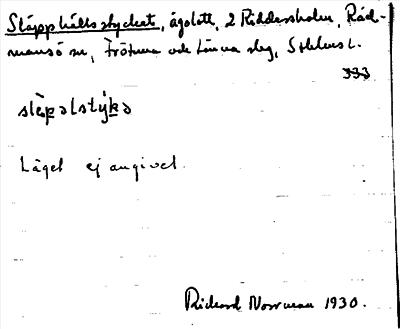 Släpphållsstycket, ägolott, 2 Riddersholm, Råd-
mansö sn, Frötuna och Länna slg, Sthlms l.
333
släpəlstýkə
Läget ej angivet.
Rickard Norrman 1930.